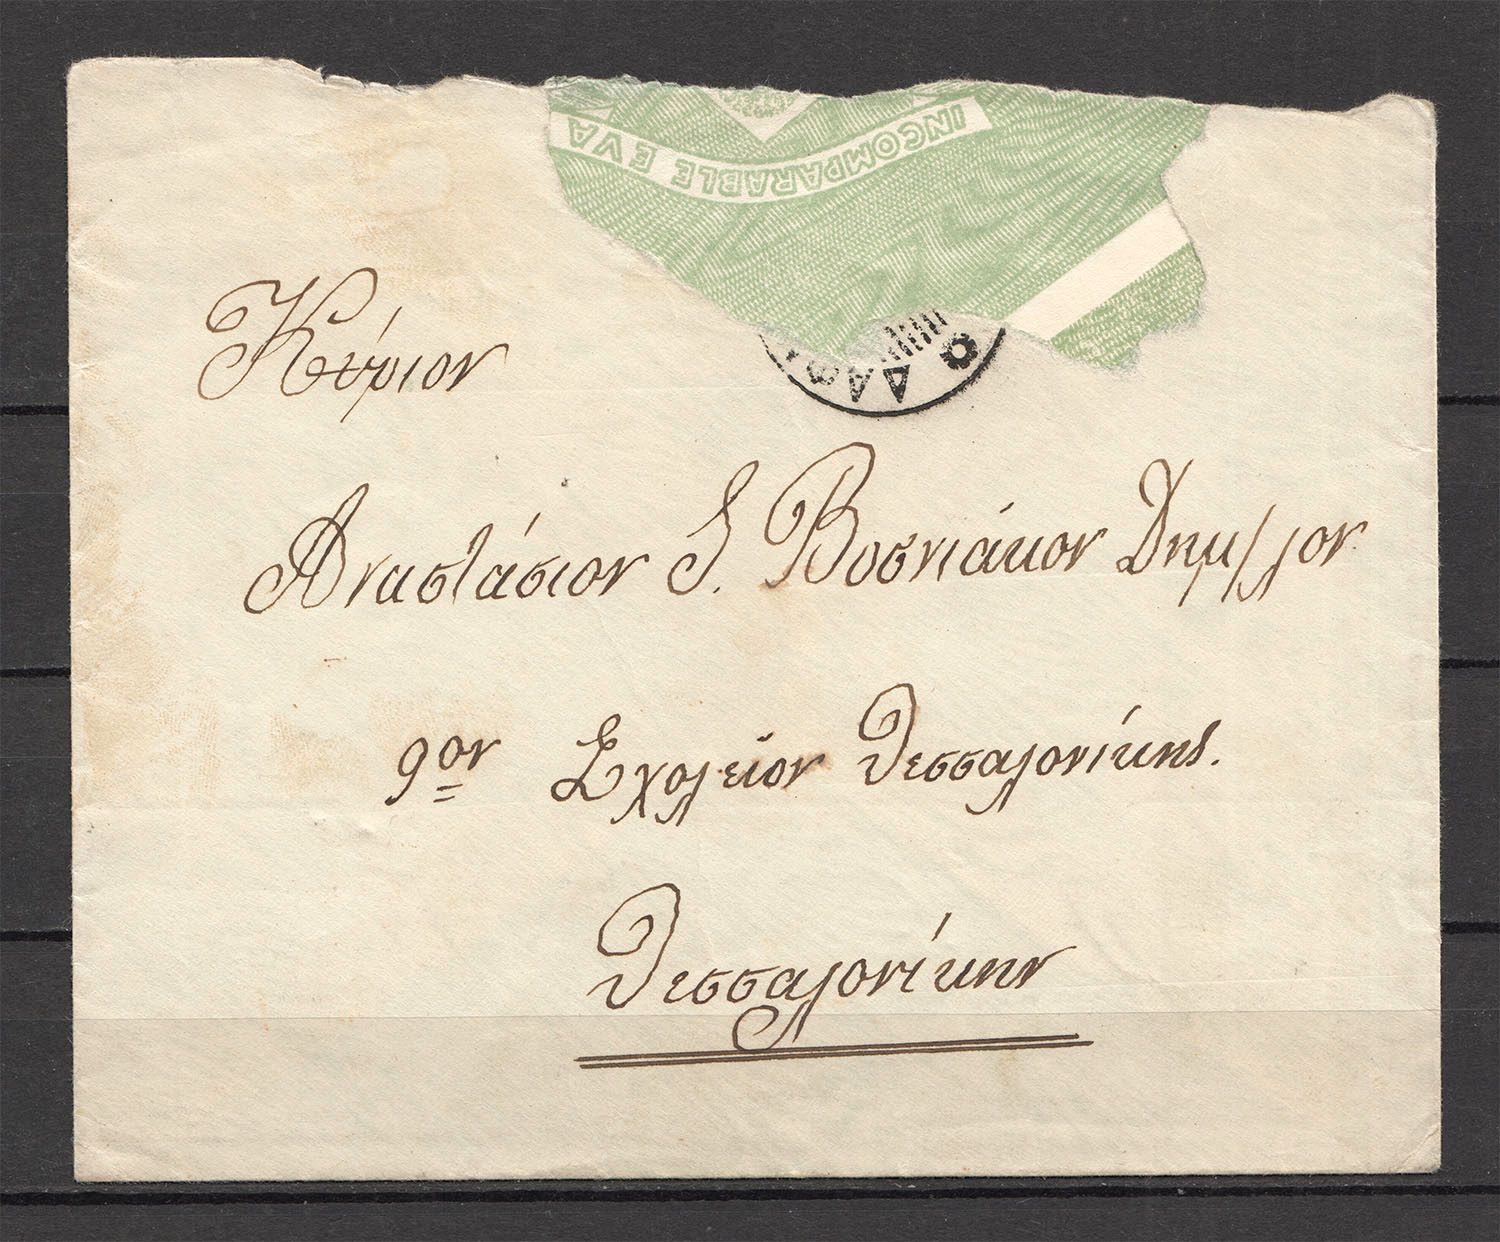 INCOMPARABLE EVA
Κύριον
Αναστάσιον Σ. Βοσνιάκον Δημ/λον
9ον Σχολείον Θεσσαλονίκης.
Θεσσαλονίκην